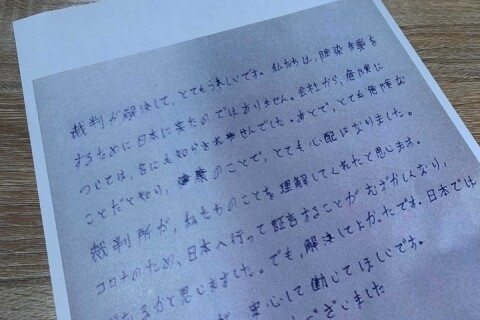 裁判が解決して、とてもうれしいです。私たちは、除染作業を
するために日本に来たのではありません。会社から、危険に
ついては、なにも知らされませんでした。あとで、とても危険な
ことだと知り、健康のことで、とても心配になりました。
裁判所が、私たちのことを理解してくれたと思います。
コロナのため、日本へ行って証言することがむずかしくなり、
なるかと思いました。でも、解決してよかったです。日本では
が、安心して働いてほしいです。
ございました